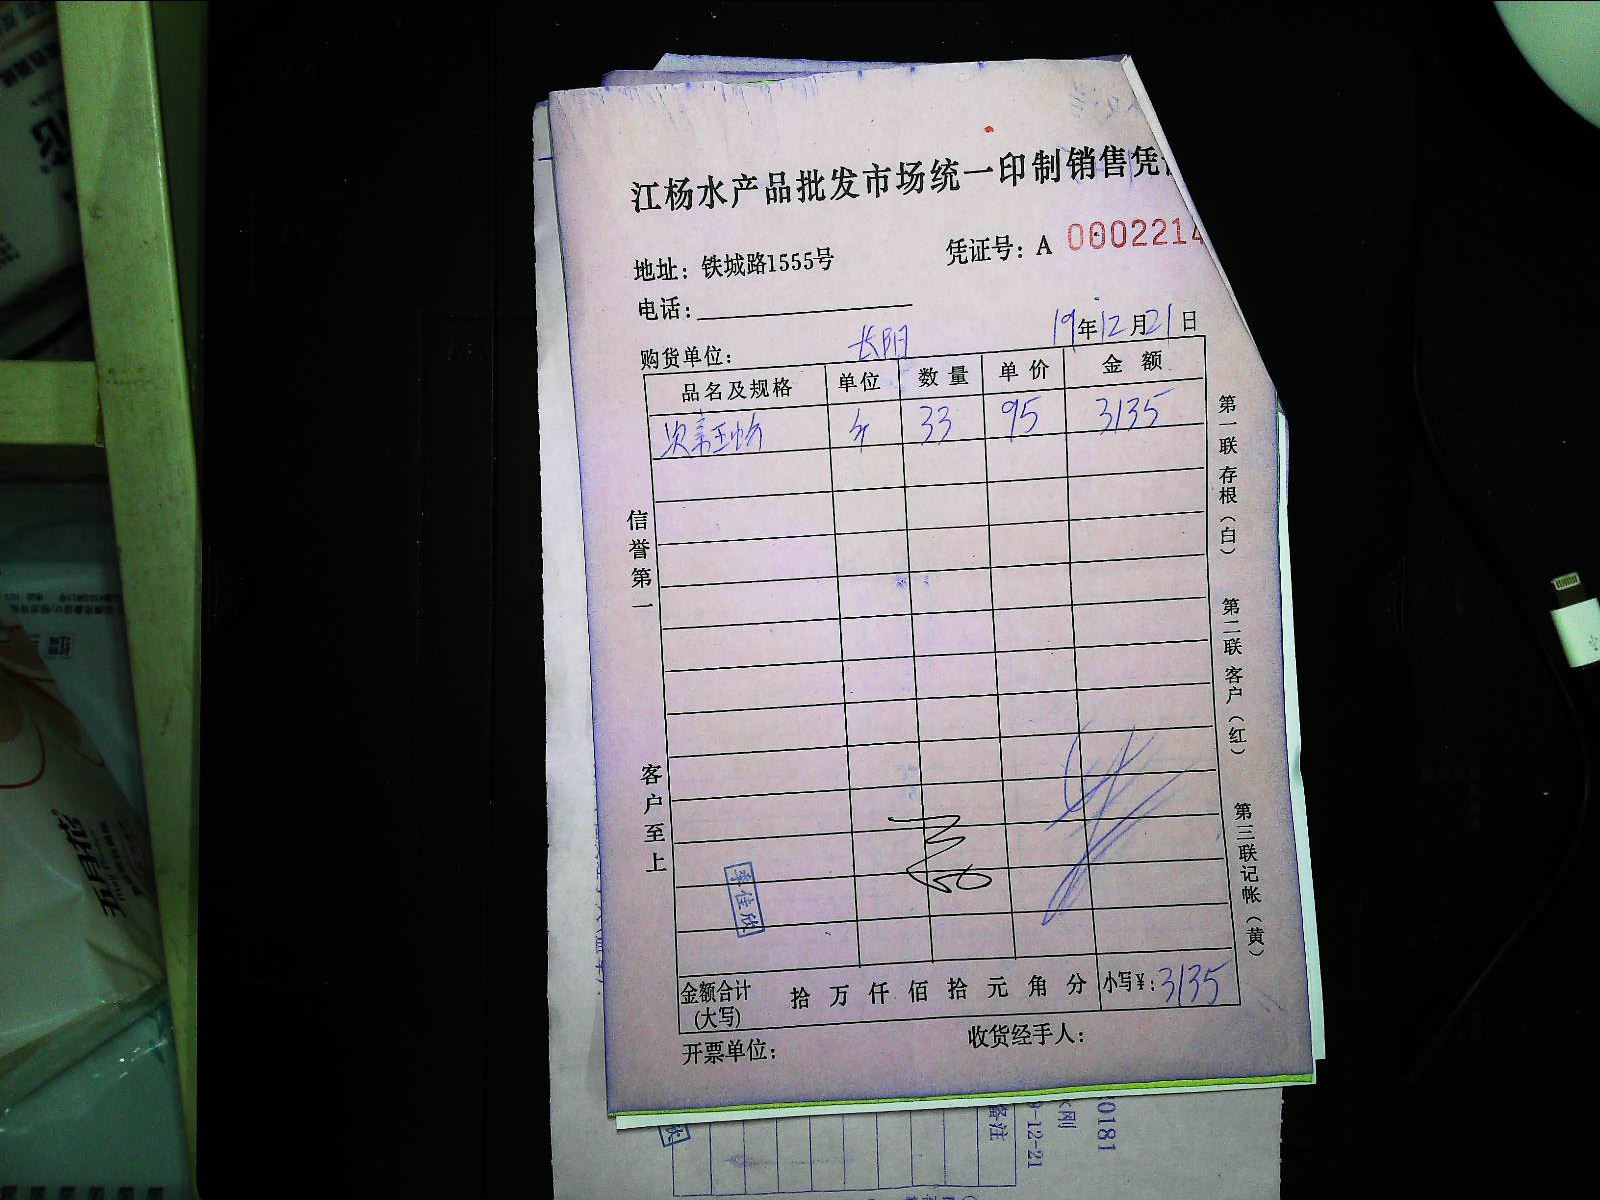 江杨水产品批发市场统一印制销售凭
地址：铁城路1555号
凭证号：A 0002214
电话：
19年12月21日
购货单位：长阳
品名及规格 单位 数量 单价 金额
斤 33 95 3135
信誉第一
客户至上
第一联存根（白）
第二联客户（红）
第三联记帐（黄）
李佳欣
金额合计（大写） 拾 万 仟 佰 拾 元 角 分 小写¥：3135
开票单位：
收货经手人：
备注
9-12-21
0181